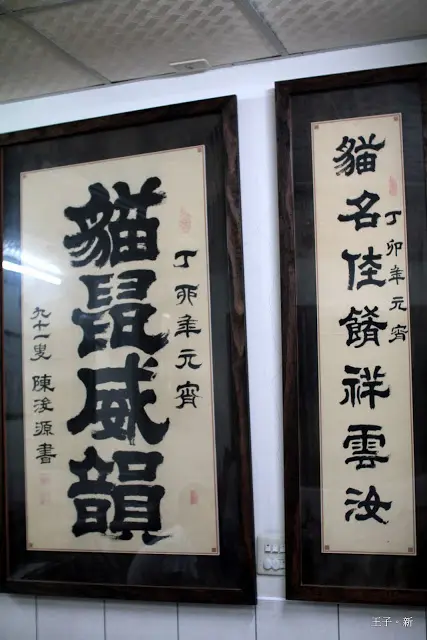 丁卯年元宵
貓名佳餚祥雲汝
丁卯年元宵
貓鼠威韻
九十一叟 陳浚源書
王子‧新